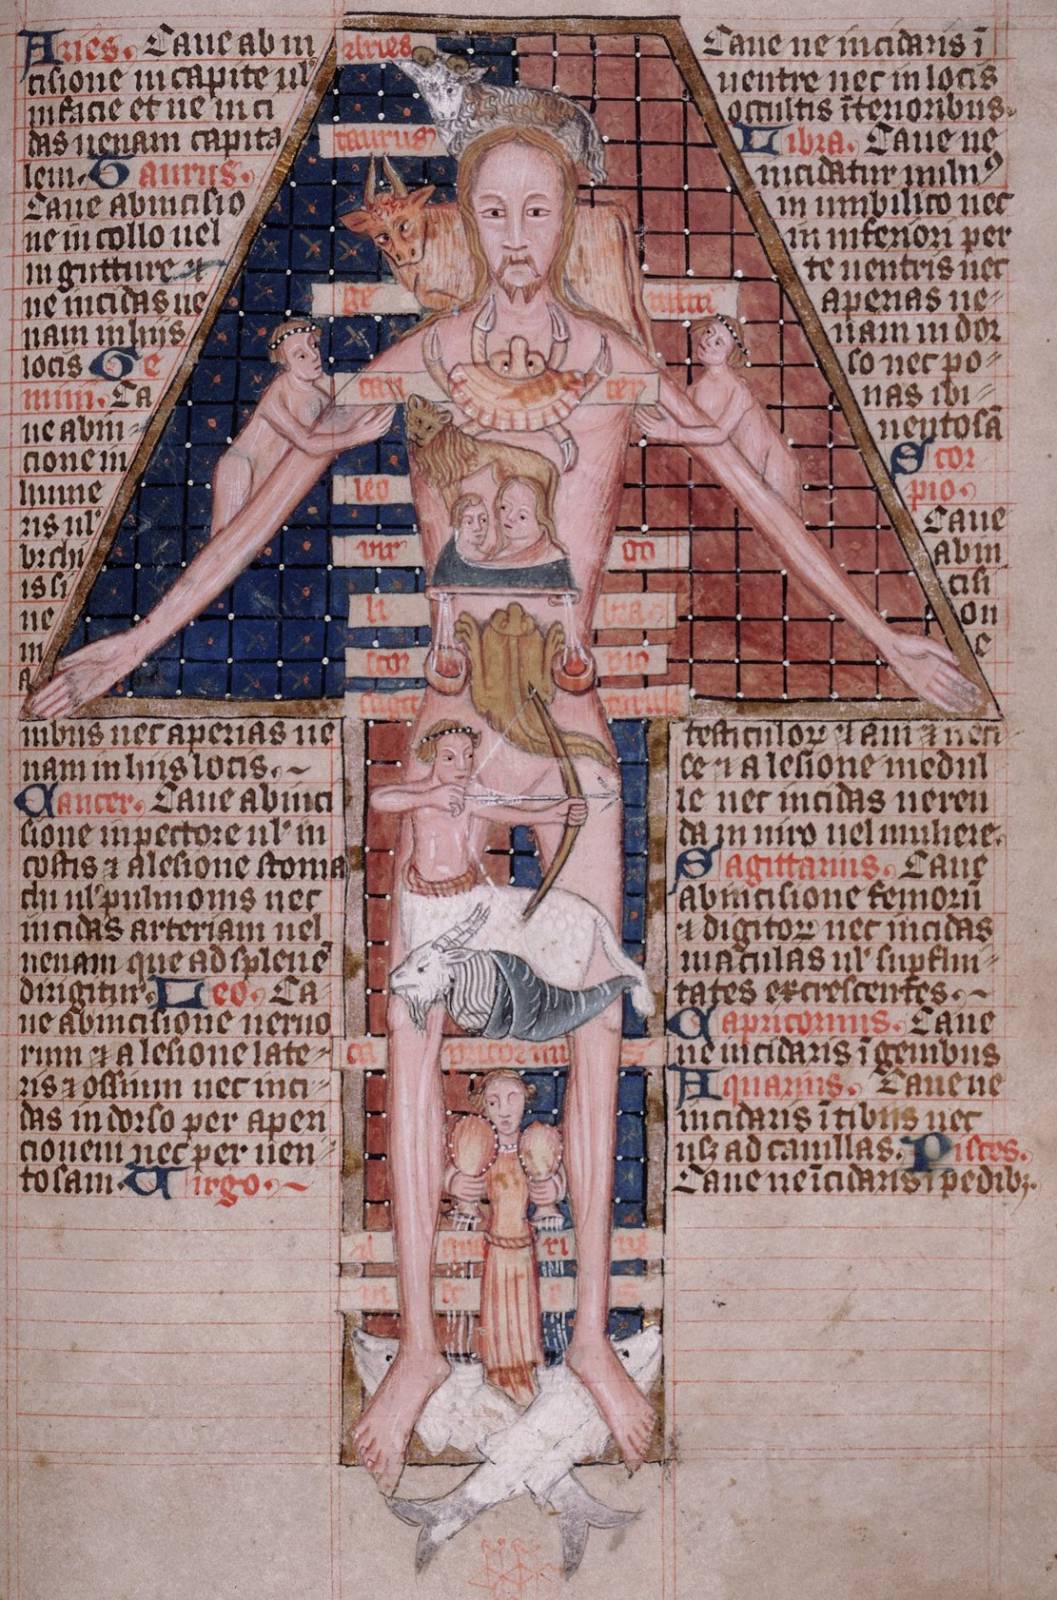 Aries. Caue ab in
cisione in capite ul'
in facie et ne inci
das uenam capita
lem. Taurus.
Caue ab incisio
ne in collo uel
in gutture et
ne incidas ue
nam in hiis
locis Ge
mini. Ca
ue ab in
cione in
hume
ris ul'
brchi
is si
ne
m
a
nibus nec aperias ue
nam in hiis locis.
Cancer. Caue ab inci
sione in pectore ul' in
costis ⁊ a lesione stoma
chi ul' pulmonis nec
incidas arteriam uel
uenam que ad splene
dirigitur. Leo. Ca
ue ab incisione neruo
rum ⁊ a lesione late
ris ⁊ ossium nec inci
das in dorso per aper
cionem nec per uen
tosam. Virgo.
Aries
taurus
ge mini
can cer
leo
vir go
li bra
scor pio
sagit
ca pricornu
a qua ri us
Caue ne incidaris ī
uentre nec in locis
occultis īterioribus.
Libra. Caue ne
incidatur
in umbilico nec
in inferiori per
te uentris nec
aperias ue
nam in dor
so nec po
nas ibi
uentosā
Scor
pio.
Caue
ab in
cisi
on
e
testiculoꝝ ⁊ ani ⁊
ce ⁊ a lesione medul
le nec incidas
da in uiro uel muliere.
Sagittarius. Caue
ab incisione femorū
⁊ digitoꝝ nec incidas
maculas ul' supflui
tates excrescentes.
Capricornus. Caue
ne incidaris ī genibus
Aquarius. Caue ne
incidaris ī tibiis nec
usꝫ ad cauillas. Pisces.
Caue ne īcidaris ī pedibꝫ.